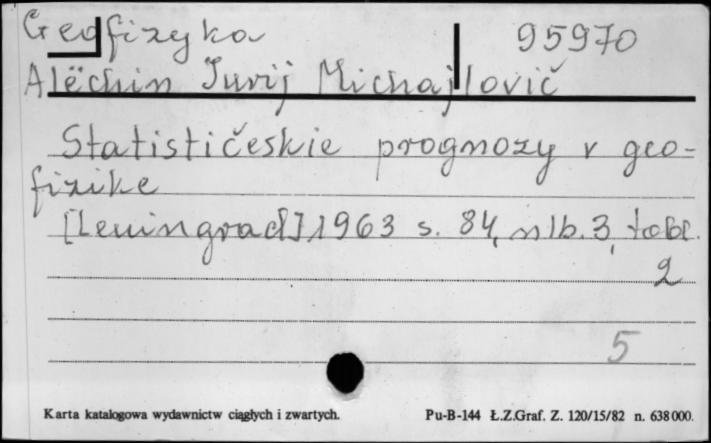 Geofizyka 95970
Alëchin Jurij Michajlovič
Statističeskie prognozy v geo-
fizike
[Leningrad] 1963 s. 84, nlb. 3, tabl.
2
5
Karta katalogowa wydawnictw ciągłych i zwartych. Pu-B-144 Ł.Z.Graf. Z. 120/15/82 n. 638000.